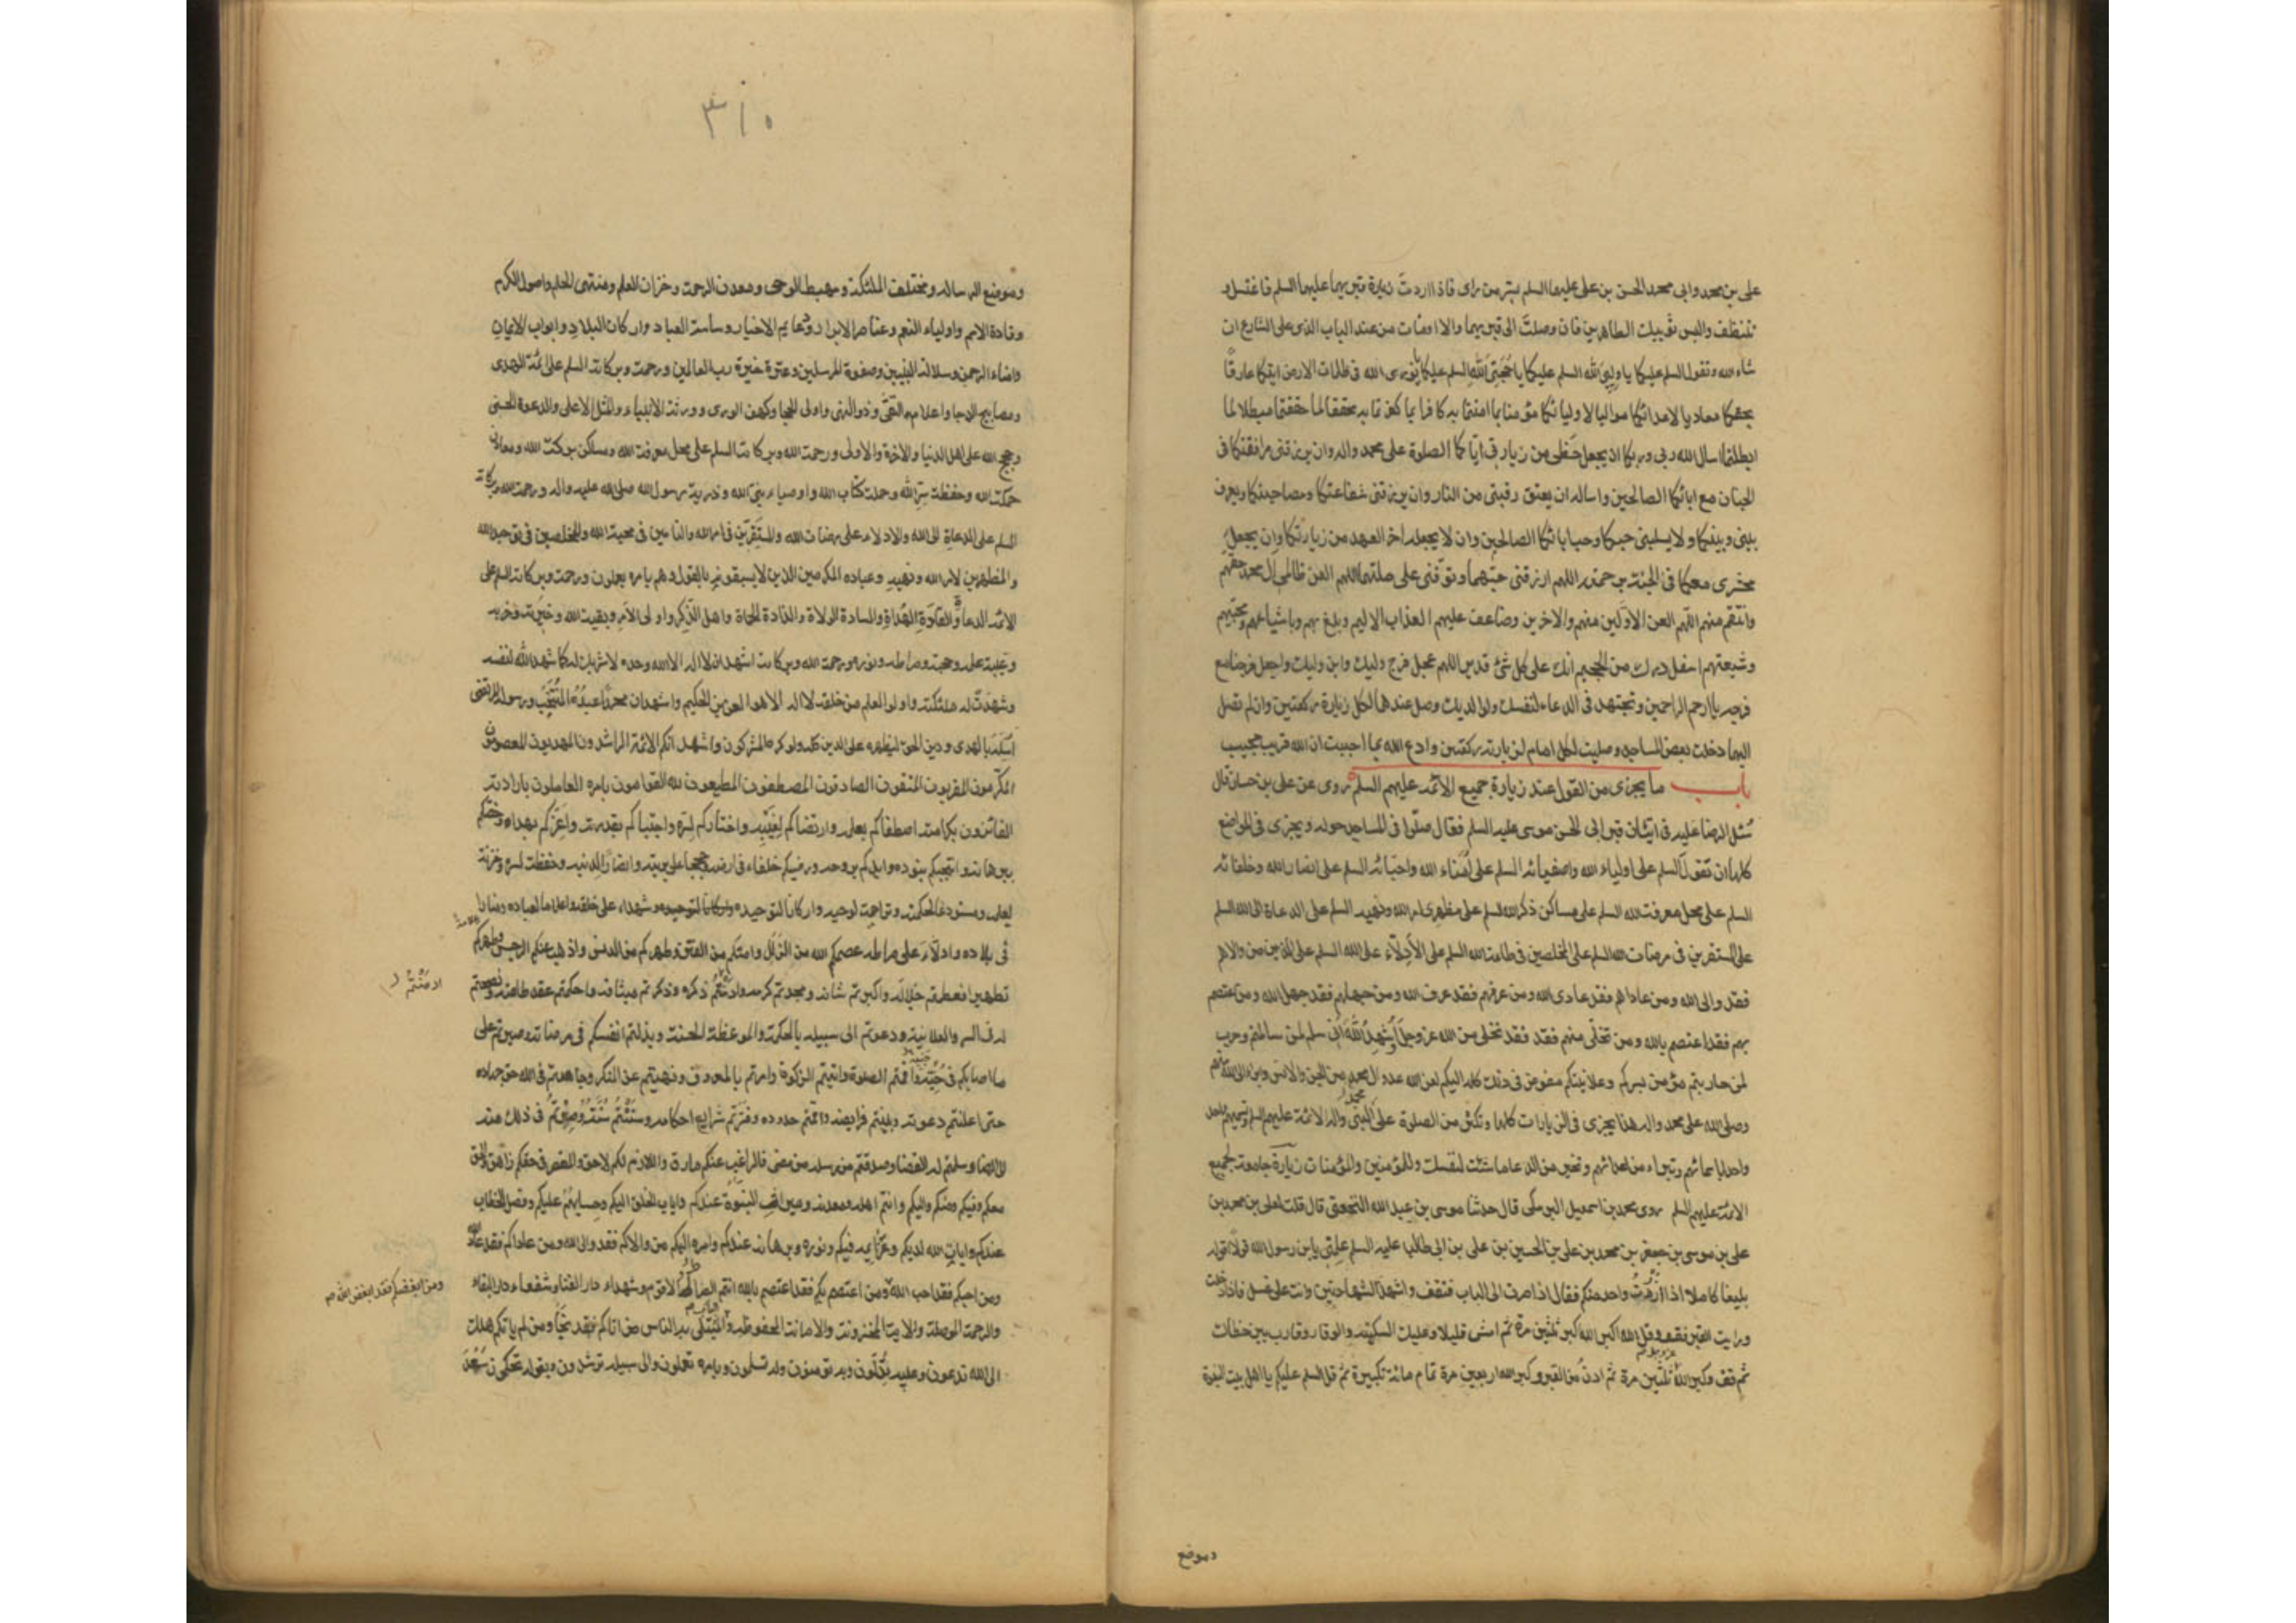 على بن محمد وابى محمد الحسن بن على عليهما السلم بسر من راى فاذا اردت زيارة قبريهما عليهما السلم فاغتسل و
تنظف والبس ثوبيك الطاهرين فان وصلت الى قبريهما والا اومات من عند الباب الذى على الشارع ان
شاء الله وتقول السلم عليكما يا وليى الله السلم عليكما يا حجتى الله السلم عليكما يا نورى الله فى ظلمات الارض اتيتكما عارفا
بحقكما معاديا لاعدائكما مواليا لاوليائكما مؤمنا بما امنتما به كافرا بما كفرتما به محققا لما حققتما مبطلا لما
ابطلتما اسال الله ربى وربكما ان يجعل حظى من زيارتى اياكما الصلوة على محمد واله وان يرزقنى مرافقتكما فى
الجنان مع ابائكما الصالحين واساله ان يعتق رقبتى من النار وان يرزقنى شفاعتكما ومصاحبتكما ويعرف
بينى وبينكما ولا يسلبنى حبكما وحب ابائكما الصالحين وان لا يجعله اخر العهد من زيارتكما وان يجعل
محشرى معكما فى الجنة برحمته اللهم ارزقنى حبهما وتوفنى على ملتهما اللهم العن ظالمى ال محمد حقهم
وانتقم منهم اللهم العن الاولين منهم والاخرين وضاعف عليهم العذاب الاليم وبلغ بهم وباشياعهم ومحبيهم
وشيعتهم اسفل درك من الجحيم انك على كل شئ قدير اللهم عجل فرج وليك وابن وليك واجعل فرجنا مع
فرجه يا ارحم الراحمين وتجتهد فى الدعاء لنفسك ولوالديك وصل عندهما لكل زيارة ركعتين وان لم تصل
اليهما دخلت بعض المساجد وصليت لكل امام لزيارته ركعتين وادع الله بما احببت ان الله قريب مجيب
باب ما يجزى من القول عند زيارة جميع الائمة عليهم السلم روى عن على بن حسان قال
سئل الرضا عليه فى اتيان قبر ابى الحسن موسى عليه السلم فقال صلوا فى المساجد حوله ويجزى فى المواضع
كلها ان تقول السلم على اولياء الله واصفيائه السلم على امناء الله واحبائه السلم على انصار الله وخلفائه
السلم على محل معرفت الله السلم على مساكن ذكر الله السلم على مظهرى امر الله ونهيه السلم على الدعاة الى الله السلم
على المستقرين فى مرضات الله السلم على المخلصين فى طاعت الله السلم على الادلاء على الله السلم على الذين من والاهم
فقد والى الله ومن عاداهم فقد عادى الله ومن عرفهم فقد عرف الله ومن جهلهم فقد جهل الله ومن اعتصم
بهم فقد اعتصم بالله ومن تخلى منهم فقد فقد تخلى من الله عز وجل اشهد الله انى سلم لمن سالمتم وحرب
لمن حاربتم مؤمن بسركم وعلانيتكم مفوض فى ذلك كله اليكم لعن الله عدو ال محمد من الجن والانس وابرء الى الله منهم
وصلى الله على محمد واله هذا يجزى فى الزيارات كلها وتكثر من الصلوة على النبى واله الائمة عليهم السلم وتسميهم واحدا
واحدا باسمائهم وتبراء من اعدائهم وتخير من الدعاء ما شئت لنفسك وللمؤمنين والمؤمنات زيارة جامعة لجميع
الائمة عليهم السلم روى محمد بن اسمعيل البرمكى قال حدثنا موسى بن عبد الله النخعى قال قلت لعلى بن محمد بن
على بن موسى بن جعفر بن محمد بن على بن الحسين بن على بن ابى طالب عليه السلم علمنى يابن رسول الله قولا اقوله
بليغا كاملا اذا زرت واحد منكم فقال اذا صرت الى الباب فتقف واشهد الشهادتين وانت على غسل فاذا دخلت
ورايت القبر فقف وقل الله اكبر الله اكبر ثلثين مرة ثم امش قليلا وعليك السكينة والوقار وقارب بين خطاك
ثم قف وكبر الله ثلثين مرة ثم ادن من القبر وكبر الله اربعين مرة تمام مائة تكبيرة ثم قل السلم عليكم يا اهل بيت النبوة
وموضع
٣١٠
وموضع الرساله ومختلف الملئكة ومهبط الوحى ومعدن الرحمت وخزان العلم ومنتهى الحلم واصول الكرم
وقادة الامم واولياء النعم وعناصر الابرار ودعايم الاخيار وساسة العباد واركان البلاد وابواب الايمان
وامناء الرحمن وسلالة النبيين وصفوة المرسلين وعترة خيرة رب العالمين ورحمت وبركاته السلم على ائمة الهدى
ومصابيح الدجا واعلام التقى وذو النهى واولى الحجا وكهف الورى وورثة الانبياء والمثل الاعلى والدعوة الحسنى
وحجج الله على اهل الدنيا والاخرة والاولى ورحمت الله وبركاته السلم على محل معرفت الله ومساكن بركت الله ومعادن
حكمت الله وحفظت سر الله وحملت كتاب الله واوصياء نبى الله وذرية رسول الله صلى الله عليه واله ورحمت الله وبركاته
السلم على الدعاة الى الله والادلاء على مرضات الله والمستقرين فى امر الله والتامين فى محبة الله والمخلصين فى توحيد الله
والمظهرين لامر الله ونهيه وعباده المكرمين الذين لا يسبقونه بالقول وهم بامره يعملون ورحمت وبركاته السلم على
الائمة الدعاة والقادة الهداة والسادة الولاة والذادة الحماة واهل الذكر واولى الامر وبقيت الله وخيرته وحزبه
وعيبة علمه وحجته وصراطه ونوره ورحمة الله وبركاته اشهد ان لا اله الا الله وحده لا شريك له كما شهد الله لنفسه
وشهدت له ملئكته واولوا العلم من خلقه لا اله الا هو العزيز الحكيم واشهد ان محمدا عبده المنتجب ورسوله المرتضى
ارسله بالهدى ودين الحق ليظهره على الدين كله ولو كره المشركون واشهد انكم الائمة الراشدون المهديون المعصومون
المكرمون المقربون المتقون الصادقون المصطفون المطيعون لله القوامون بامره العاملون بارادته
الفائزون بكرامته اصطفاكم بعلمه وارتضاكم لغيبه واختاركم لسره واجتباكم بقدرته واعزكم بهداه وخصكم
ببرهانه وانتجبكم بنوره وايدكم بروحه ورضيكم خلفاء فى ارضه وحججا على بريته وانصارا لدينه وحفظة لسره وخزنة
لعلمه ومستودعا لحكمته وتراجمة لوحيه واركانا لتوحيده وشهداء على خلقه واعلاما لعباده ومنارا
فى بلاده وادلاء على صراطه عصمكم الله من الزلل وامنكم من الفتن وطهركم من الدنس واذهب عنكم الرجس وطهركم
تطهيرا فعظمتم جلاله واكبرتم شانه ومجدتم كرمه وادمنتم ذكره وذكرتم ميثاقه واحكمتم عقد طاعته ونصحتم
له فى السر والعلانية ودعوتم الى سبيله بالحكمة والموعظة الحسنة وبذلتم انفسكم فى مرضاته وصبرتم على
ما اصابكم فى جنبه واقمتم الصلوة واتيتم الزكوة وامرتم بالمعروف ونهيتم عن المنكر وجاهدتم فى الله حق جهاده
حتى اعلنتم دعوته وبينتم فرايضه واقمتم حدوده وفسرتم شرايع احكامه وسننتم سنته وصرتم فى ذلك منه
الى الرضا وسلمتم له القضا وصدقتم من رسله من مضى فالراغب عنكم مارق واللازم لكم لاحق والمقصر فى حقكم زاهق والحق
معكم وفيكم ومنكم واليكم وانتم اهله ومعدنه وميراث النبوة عندكم واياب الخلق اليكم وحسابهم عليكم وفصل الخطاب
عندكم وايات الله لديكم وعزايمه فيكم ونوره وبرهانه عندكم وامره اليكم من والاكم فقد والى الله ومن عاداكم فقد عاد الله
ومن احبكم فقد احب الله ومن اعتصم بكم فقد اعتصم بالله انتم الصراط الاقوم وشهداء دار الفنا وشفعاء دار البقاء
والرحمة الموصلة والاية المخزونة والامانة المحفوظة والباب المبتلى به الناس من اتاكم فقد نجا ومن لم ياتكم هلك
الى الله تدعون وعليه تدلون وبه تومنون وله تسلمون وبامره تعملون والى سبيله ترشدون وبقوله تحكمون سعد
ادمنتم
ومن ابغضكم فقد ابغض الله